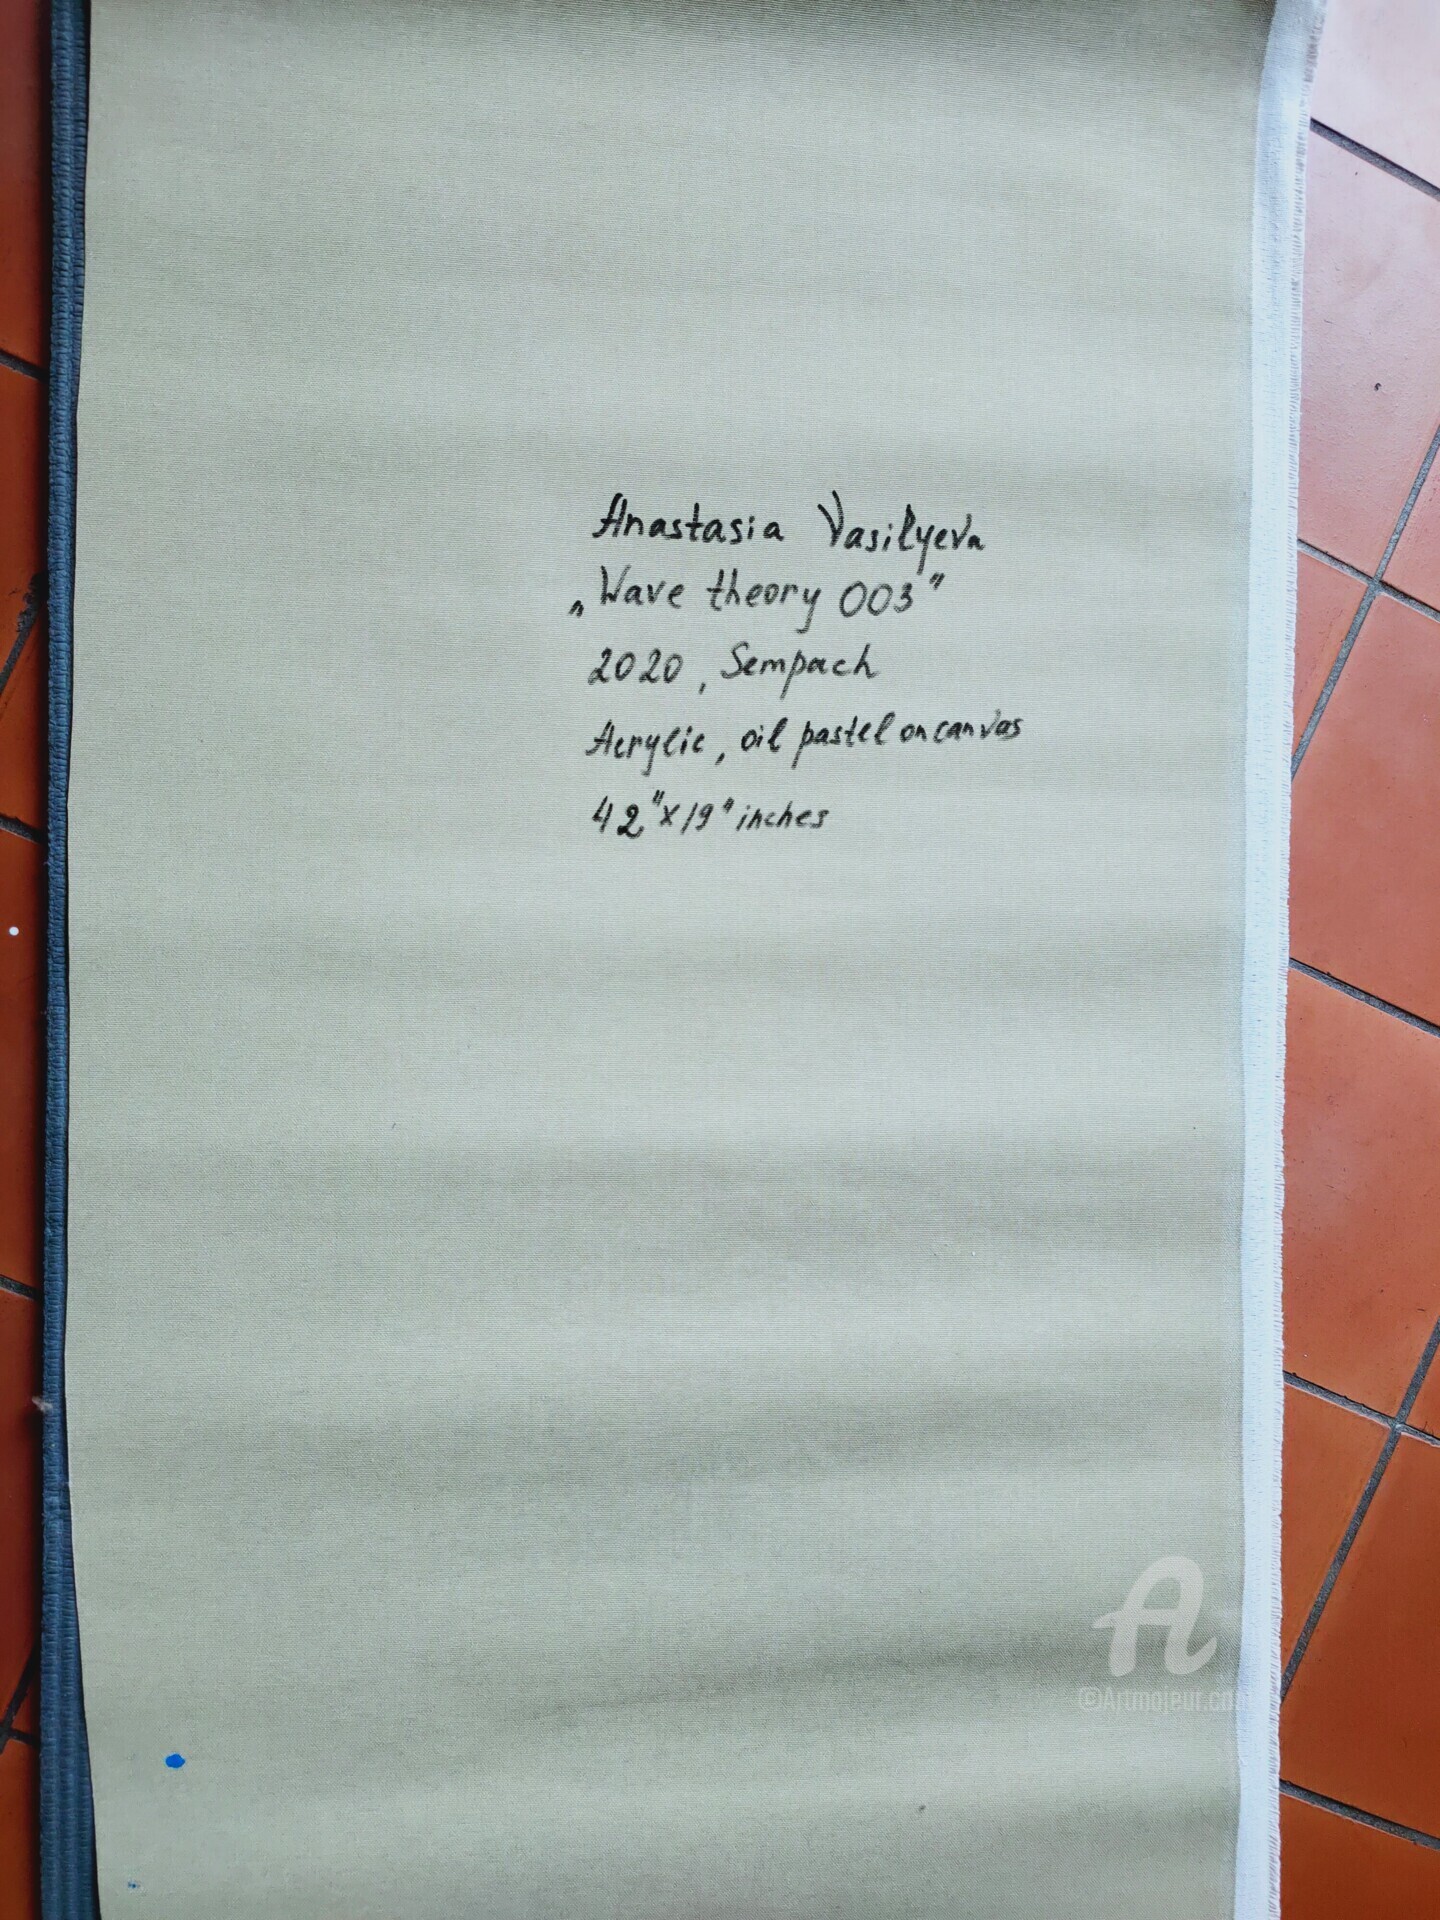 Anastasia Vasilyeva
„Wave theory 003"
2020, Sempach
Acrylic, oil pastel on canvas
42"x19" inches
A
©Artmajeur.com